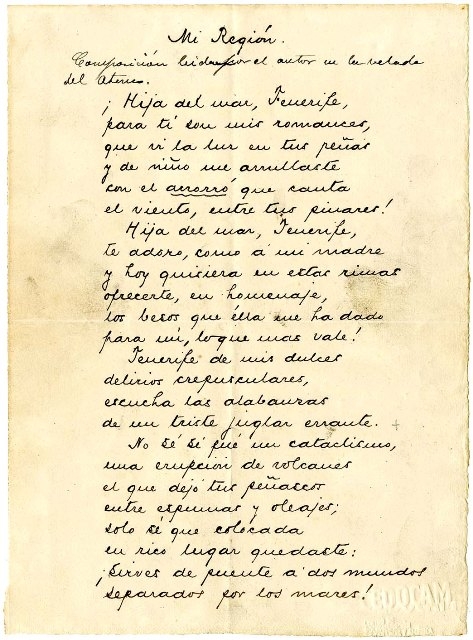 Mi Región.
Composición leida por el autor en la velada
del Ateneo.
¡Hija del mar, Tenerife,
para tí son mis romances,
que vi la luz en tus peñas
y de niño me arrullaste
con el arrorró que canta
el viento, entre tus pinares!
Hija del mar, Tenerife,
te adoro, como á mi madre
y hoy quisiera en estas rimas
ofrecerte, en homenaje,
los besos que élla me ha dado
para mí, lo que mas vale!
Tenerife de mis dulces
delirios crepusculares,
escucha las alabanzas
de un triste juglar errante.
No sé si fué un cataclismo,
una erupcion de volcanes
el que dejó tus peñascos
entre espumas y oleajes;
solo sé que colocada
en rico lugar quedaste:
¡Sirves de puente á dos mundos
separados por los mares!
TODOCOLECCION